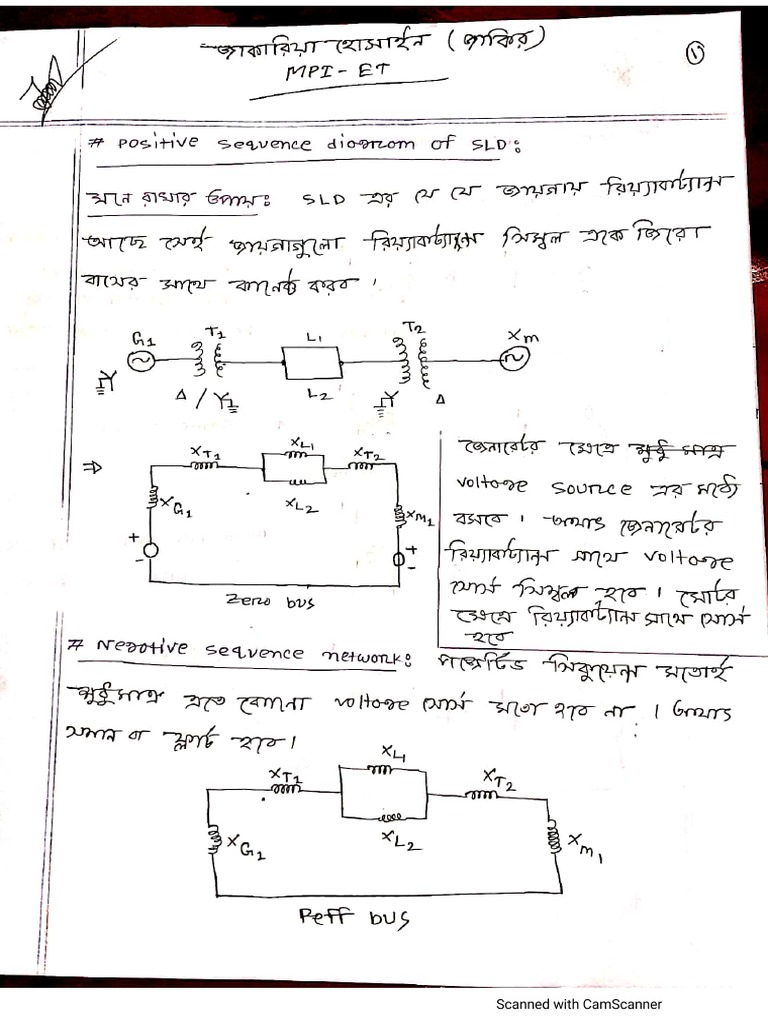 জাকারিয়া হোসাইন (জাকির)
MPI - ET
১
# Positive sequence diagram of SLD:
মনে রাখার উপায়: SLD এর যে যে জায়গায় রিয়্যাকট্যান্স
আছে সেই জায়গাগুলো রিয়্যাকট্যান্স সিম্বল এঁকে জিরো
বাসের সাথে কানেক্ট করব।
G1 T1 L1 T2 Xm
Δ / Y L2 Y Δ
⇒ XT1 XL1 XT2
XG1 XL2 XM1
+ - + -
Zero bus
জেনারেটর ক্ষেত্রে শুধু মাত্র
voltage source এর মধ্যে
বসবে। অথাৎ জেনারেটর
রিয়্যাকট্যান্স সাথে voltage
সোর্স সিম্বল হবে। মোটর
ক্ষেত্রে রিয়্যাকট্যান্স সাথে সোর্স
হবে
# Negative sequence network: পজেটিভ সিকুয়েন্স মতোই
শুধুমাত্র এতে কোনো voltage সোর্স মতো হবে না। অথাৎ
সমান বা হবে।
XL1
XT1 XT2
XL2
XG1 XM1
Reff bus
Scanned with CamScanner